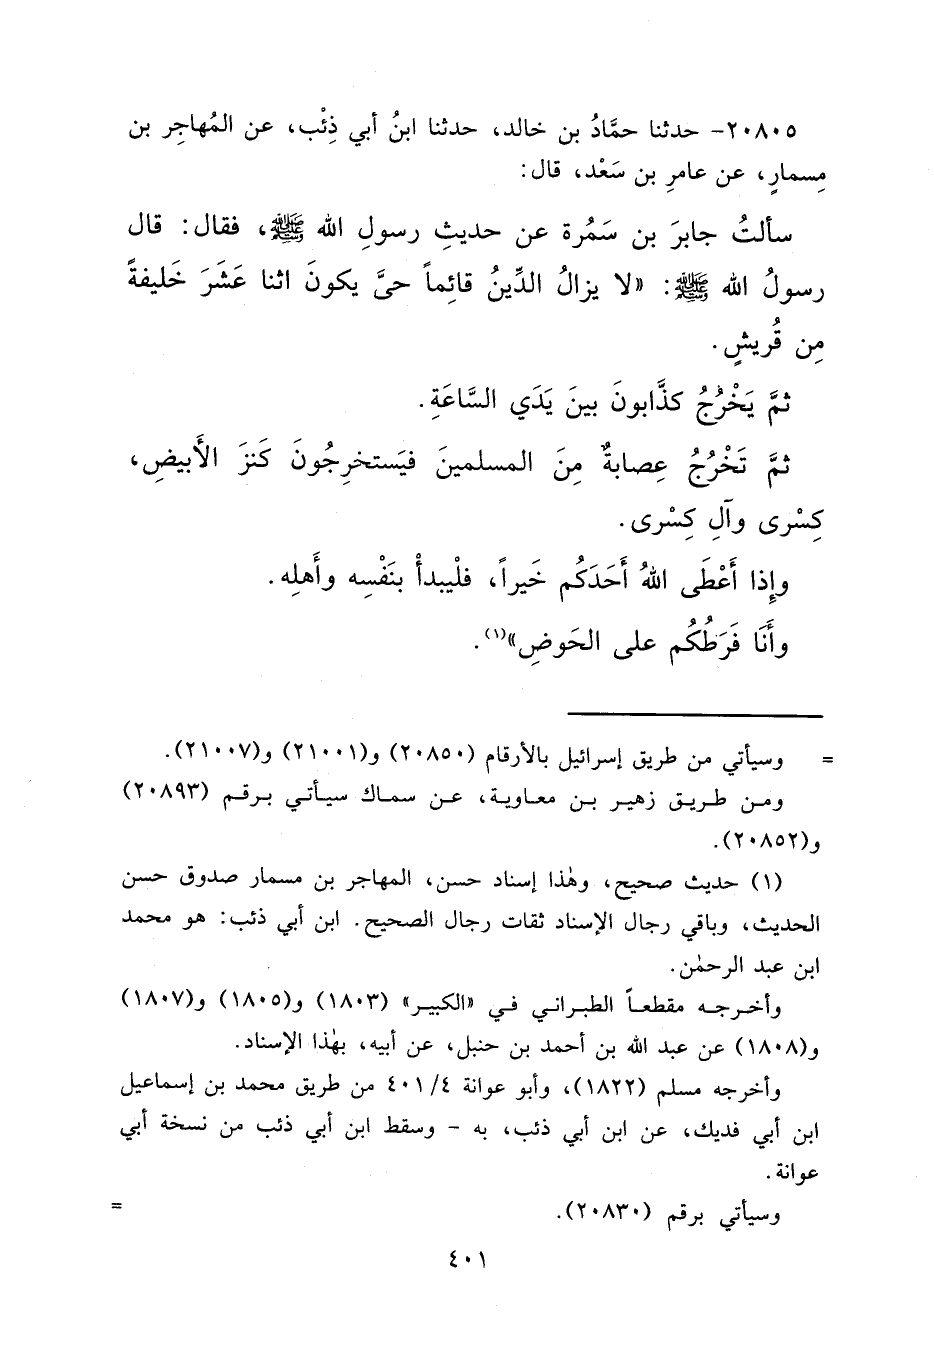 ٢٠٨٠٥- حدثنا حمَّادُ بن خالد، حدثنا ابنُ أبي ذِئْب، عن المُهاجِر بن
مِسمارٍ، عن عامرِ بن سَعْد، قال:
سألتُ جابرَ بن سَمُرة عن حديثِ رسولِ الله ﷺ، فقال: قال
رسولُ الله ﷺ: «لا يزالُ الدِّينُ قائِماً حتَّى يكونَ اثنا عَشَرَ خَليفةً
مِن قُريشٍ.
ثمَّ يَخْرُجُ كذَّابونَ بينَ يَدَي السَّاعَةِ.
ثمَّ تَخْرُجُ عِصابةٌ مِنَ المسلمينَ فيَستخرِجُونَ كَنزَ الأَبيضِ،
كِسْرى وآلِ كِسْرى.
وإِذا أَعْطَى اللهُ أَحَدَكُم خَيراً، فلْيبدأْ بنَفْسِه وأَهلِه.
وأَنَا فَرَطُكُم على الحَوضِ»(١).
= وسيأتي من طريق إسرائيل بالأرقام (٢٠٨٥٠) و(٢١٠٠١) و(٢١٠٠٧).
ومن طريق زهير بن معاوية، عن سماك سيأتي برقم (٢٠٨٩٣)
و(٢٠٨٥٢).
(١) حديث صحيح، وهٰذا إسناد حسن، المهاجر بن مسمار صدوق حسن
الحديث، وباقي رجال الإسناد ثقات رجال الصحيح. ابن أبي ذئب: هو محمد
ابن عبد الرحمٰن.
وأخرجه مقطعاً الطبراني في «الكبير» (١٨٠٣) و(١٨٠٥) و(١٨٠٧)
و(١٨٠٨) عن عبد الله بن أحمد بن حنبل، عن أبيه، بهٰذا الإسناد.
وأخرجه مسلم (١٨٢٢)، وأبو عوانة ٤/٤٠١ من طريق محمد بن إسماعيل
ابن أبي فديك، عن ابن أبي ذئب، به - وسقط ابن أبي ذئب من نسخة أبي
عوانة.
وسيأتي برقم (٢٠٨٣٠). =
٤٠١